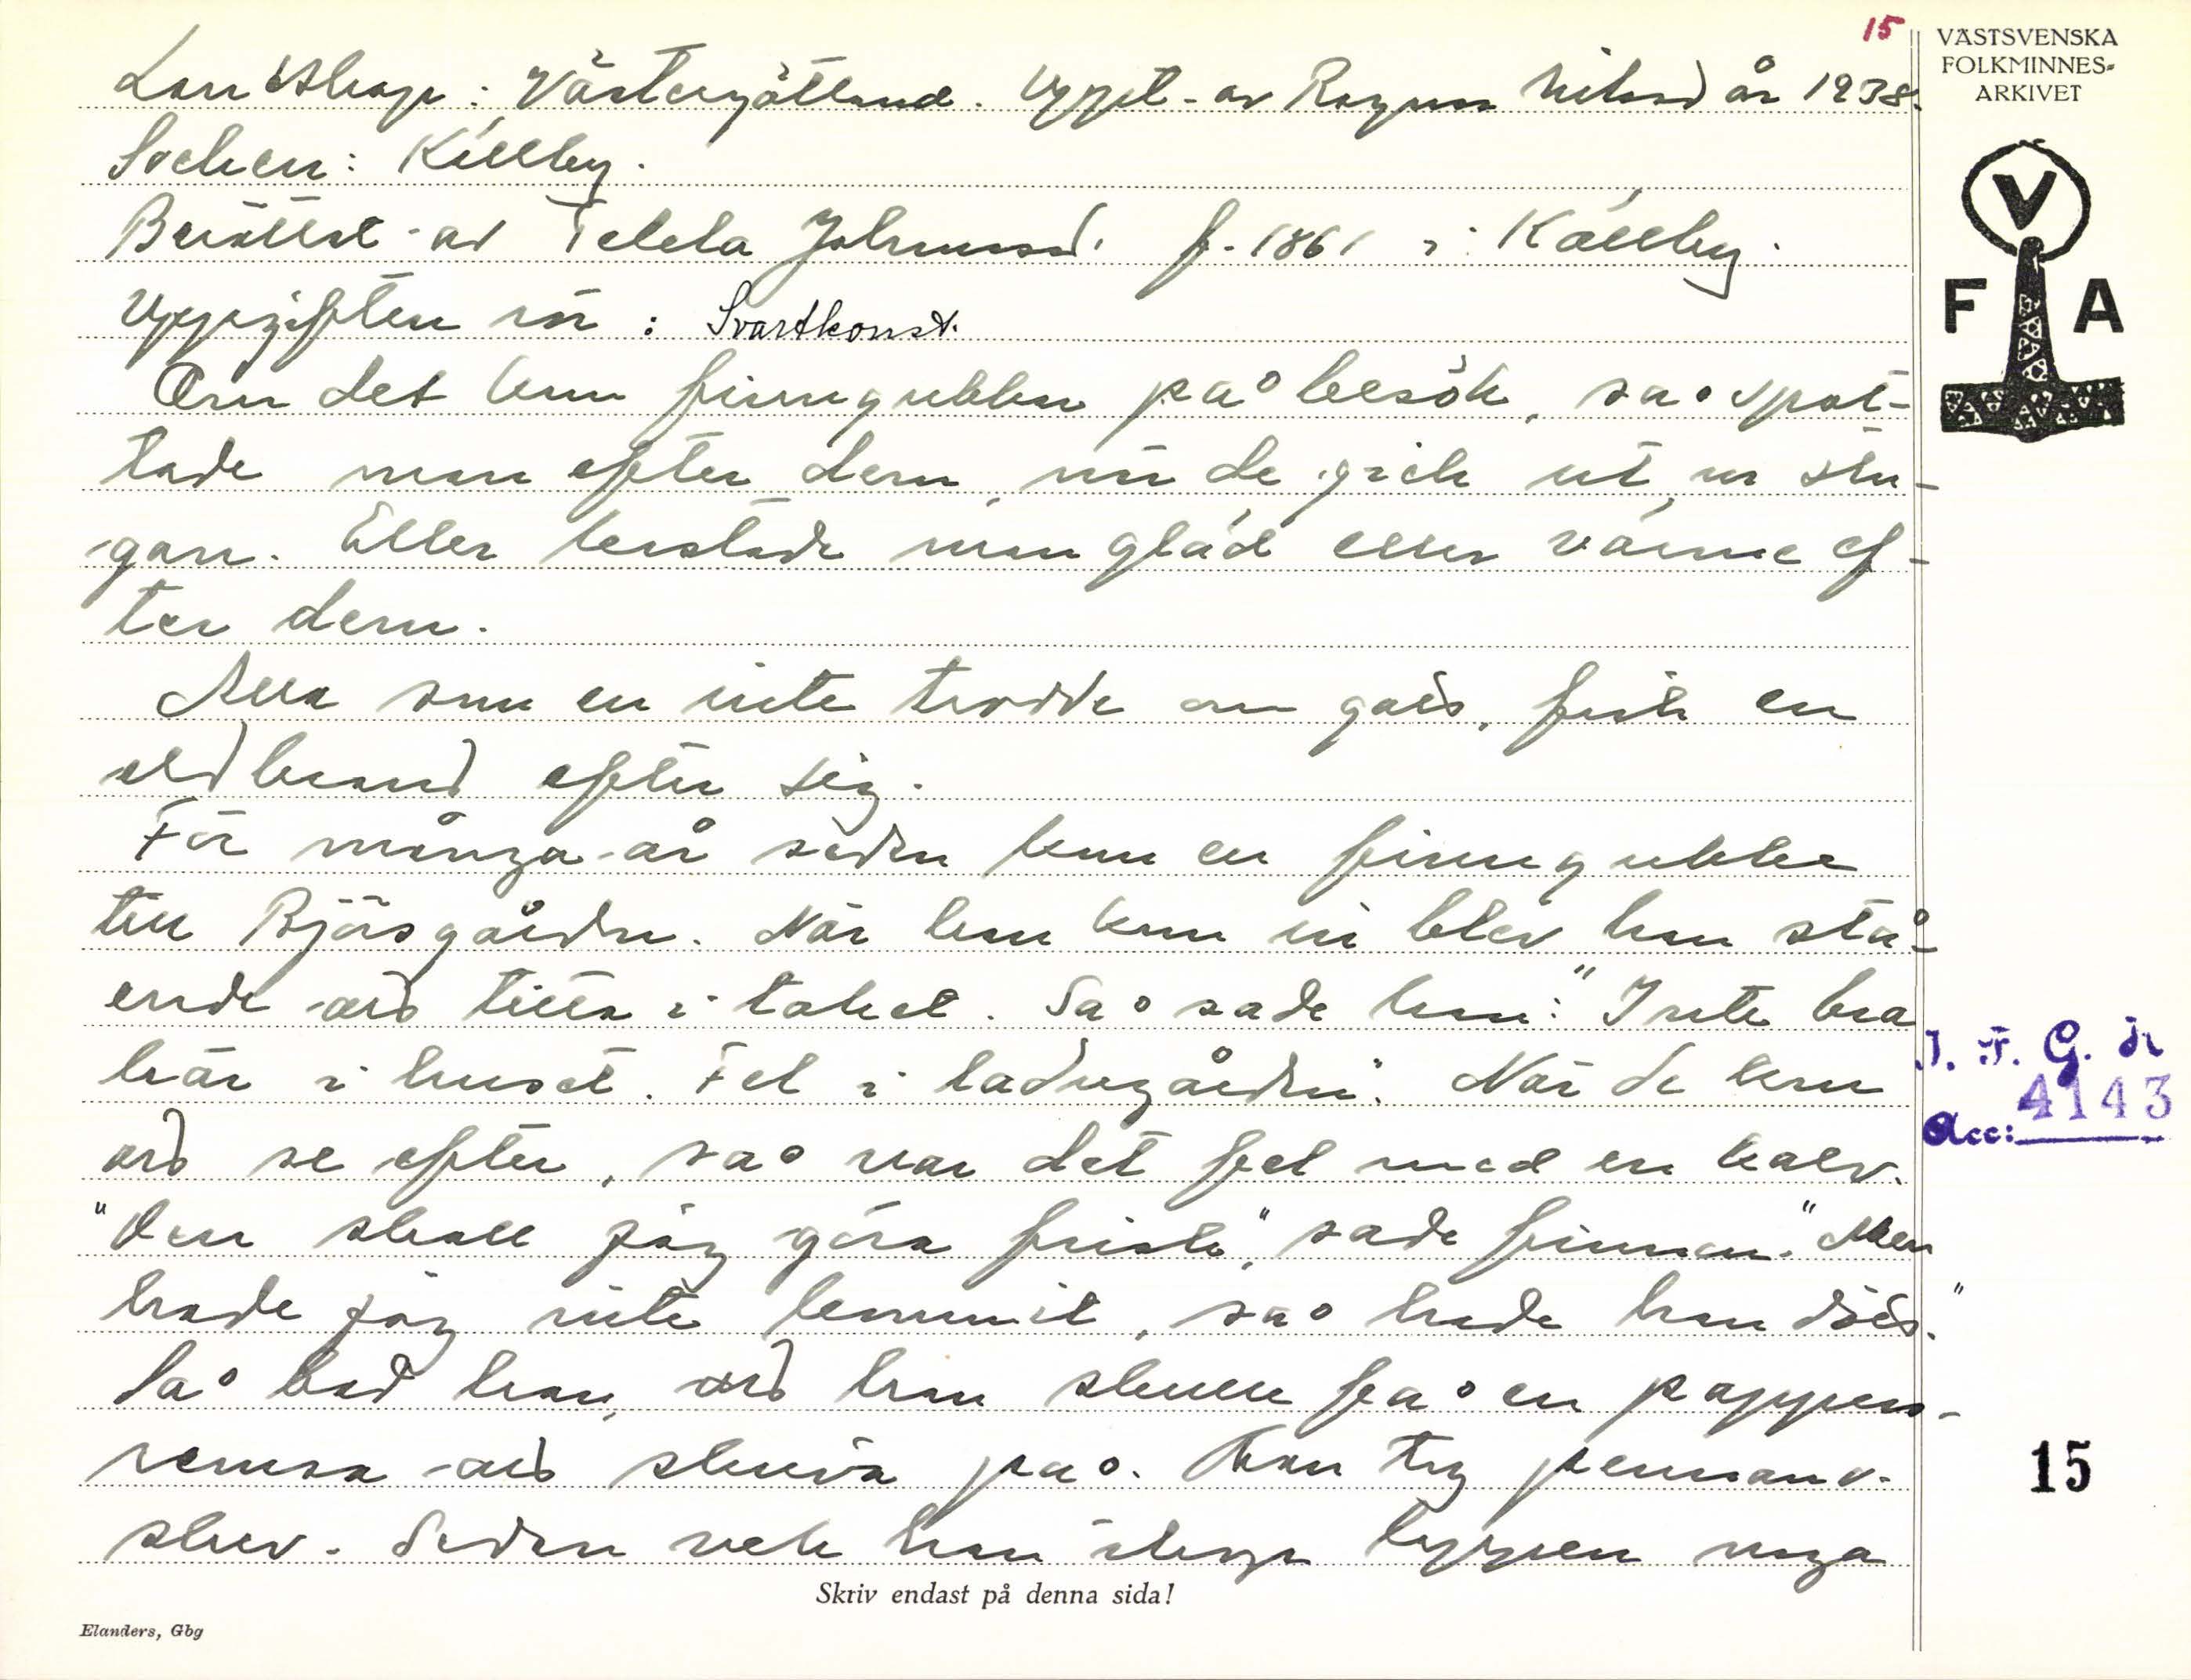 15
VÄSTSVENSKA
FOLKMINNES-
ARKIVET
Landskap: Västergötland. Uppt. av Ragnar Nilsson år 1938.
Socken: Källby.
Berättat av Tekla Johansson f. 1861 i Källby.
Uppgiften rör: Svartkonst.
V
F A
Om det kom finngubbar på besök, så spot-
tade man efter dem, när de gick ut ur stu-
gan. Eller kastade man glöd eller värme ef-
ter dem.
Alla som en inte trodde om gott, fick en
eldbrand efter sig.
För många år sedan kom en finngubbe
till Bjärsgården. När han kom in blev han stå-
ende och titta i taket. Så sade han: "Inte bra
här i huset. Fel i ladugården". När de kom
och se efter, så var det fel med en kalv.
"Den skall jag göra frisk", sade finnen. "Men
hade jag inte kommit, så hade han dött."
Så bad han, att han skulle få en pappers-
remsa att skriva på. Han tog pennan o.
skrev. Sedan vek han ihop lappen noga
I. F. G. nr
Acc: 4143
15
Skriv endast på denna sida!
Elanders, Gbg